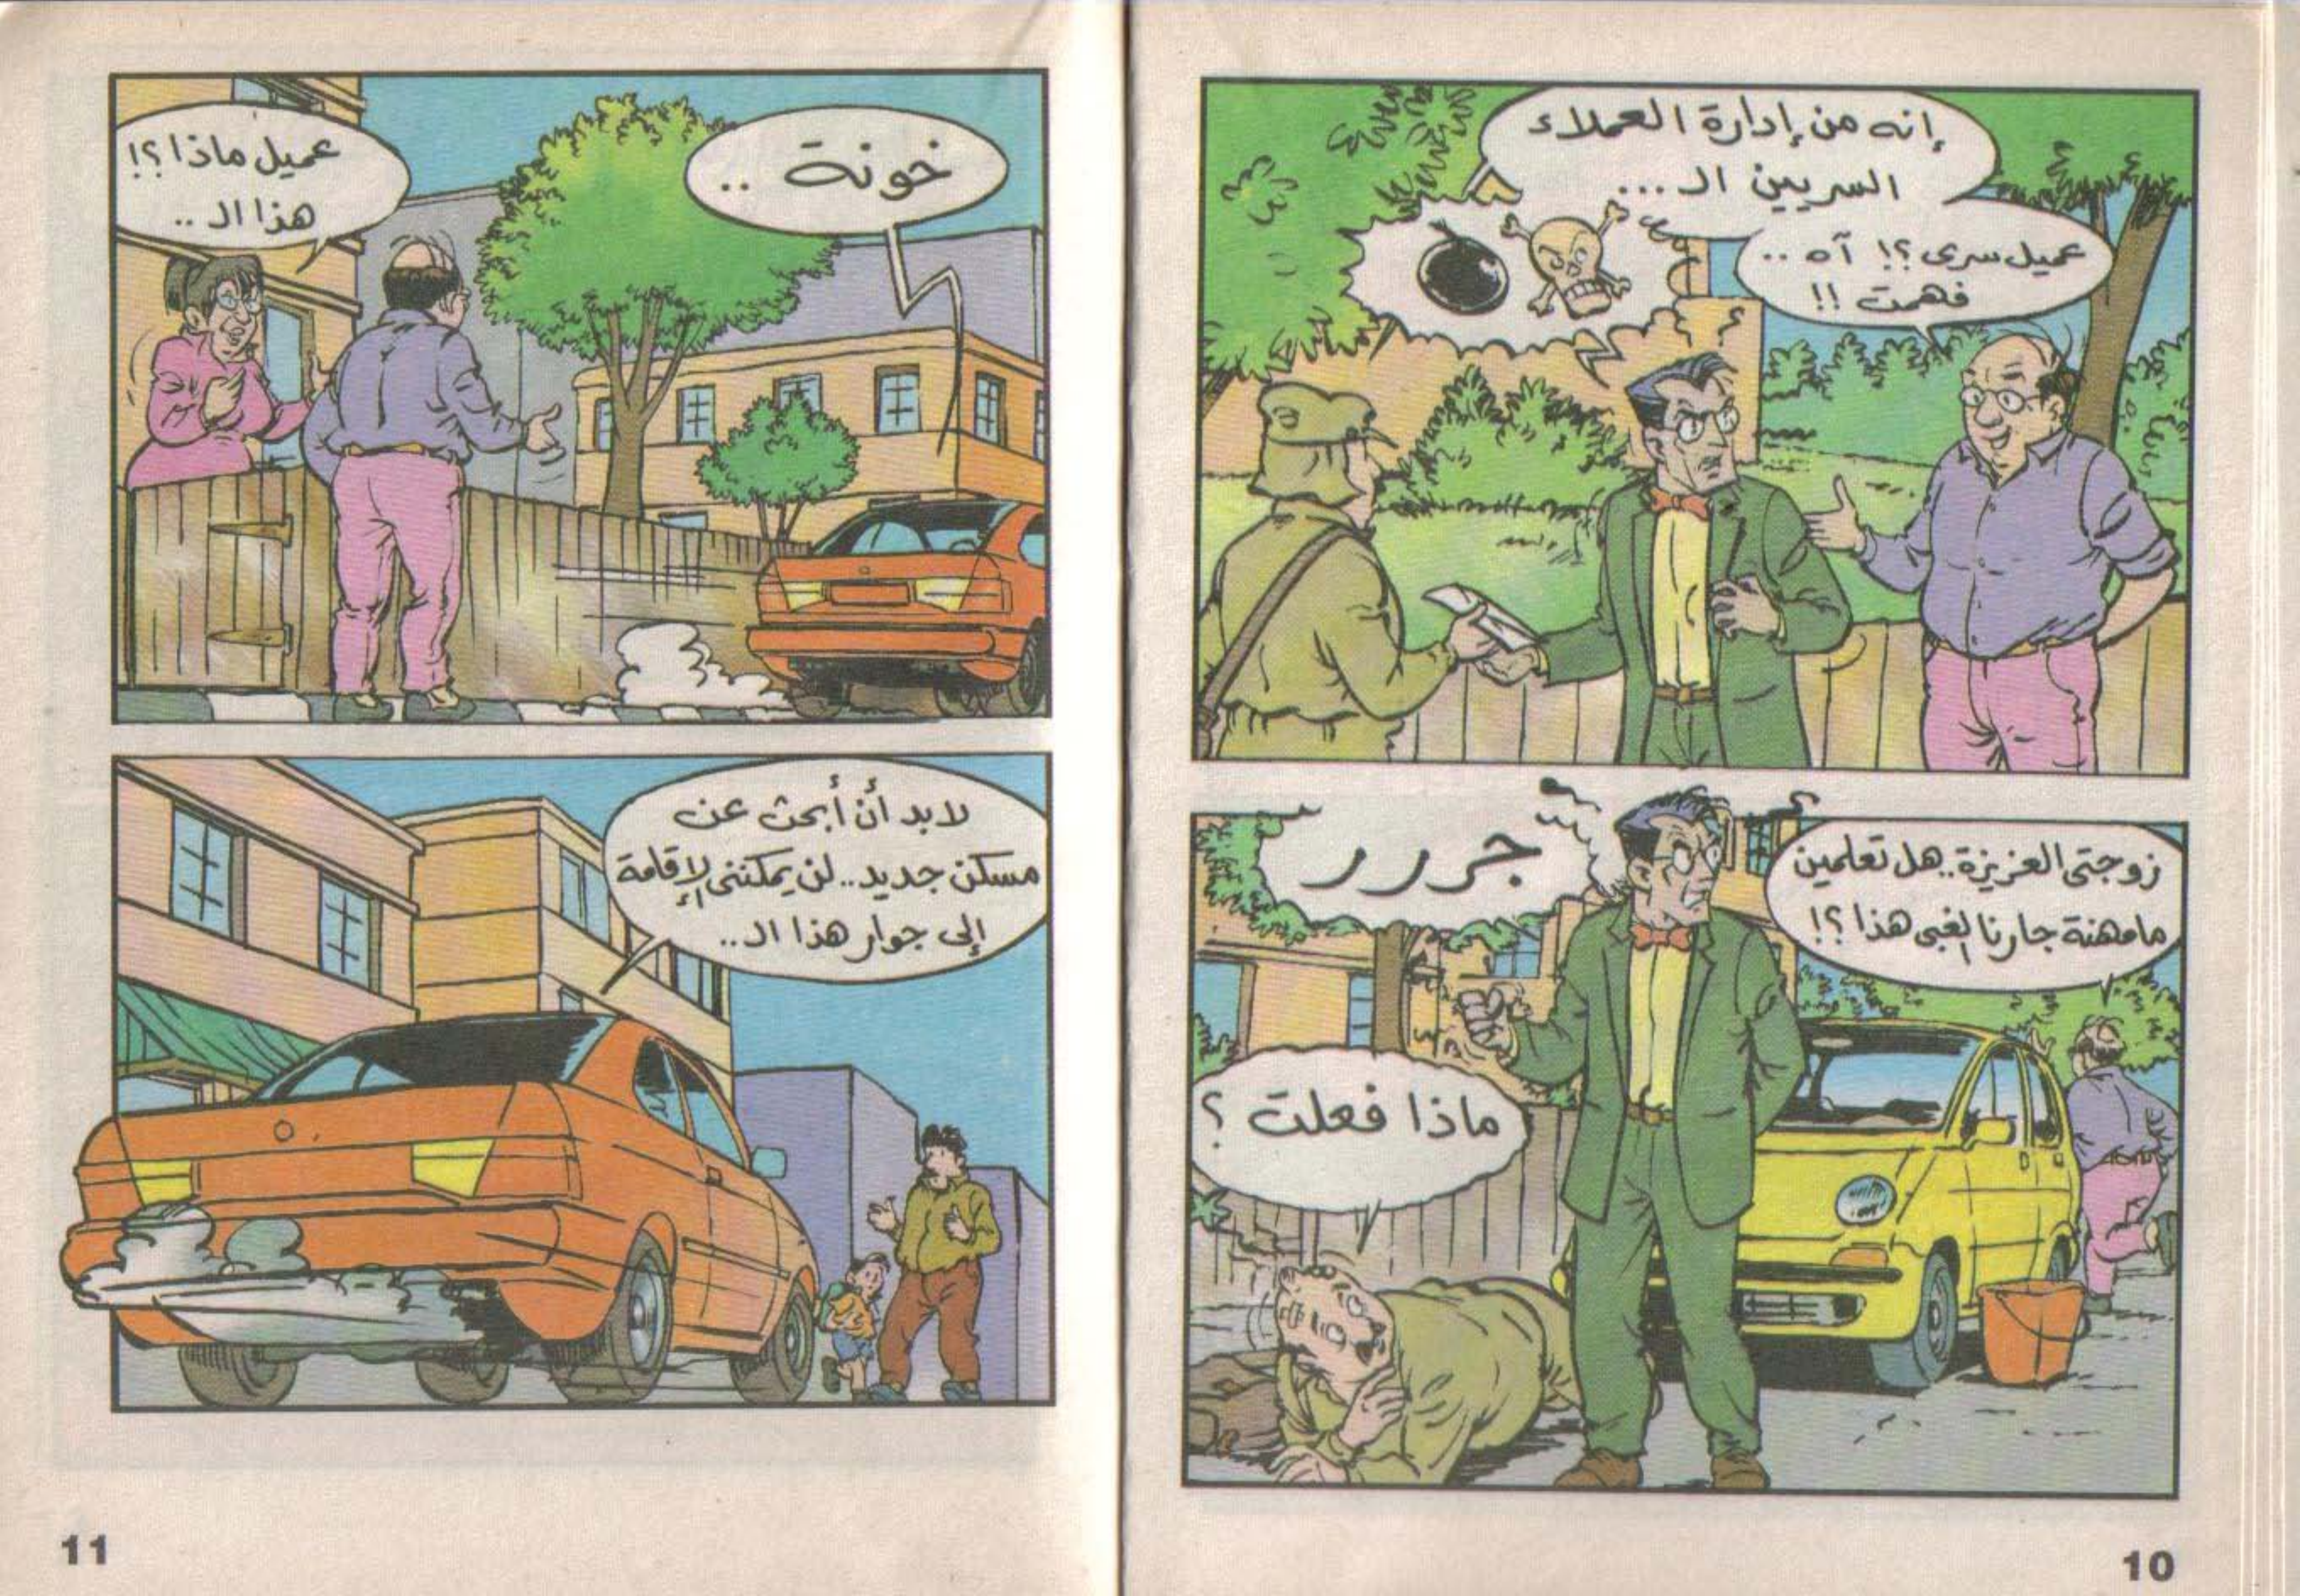 إنه من إدارة العملاء
السريين الـ...
عميل سرى؟! آه ..
فهمت !!
زوجتى العزيزة.. هل تعلمين
ما مهنة جارنا الغبى هذا؟!
جررر
ماذا فعلت ؟
10
خونة ..
عميل ماذا؟!
هذا الـ ..
لابد أن أبحث عن
مسكن جديد.. لن يمكننى الإقامة
إلى جوار هذا الـ..
11